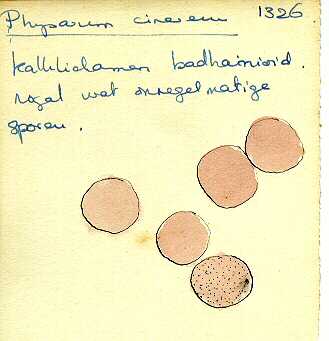 Physarum cinereum 1326
kalklichamen badhamioid.
nogal wat onregelmatige
sporen.